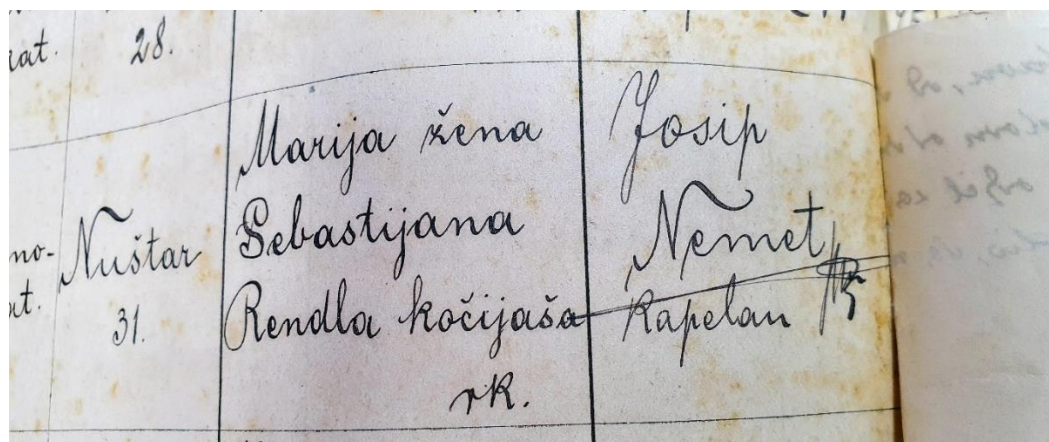 kat.
28.
no-
at.
Nuštar
31.
Marija žena
Sebastijana
Rendla kočijaša
rk.
Josip
Nemet
kapelan